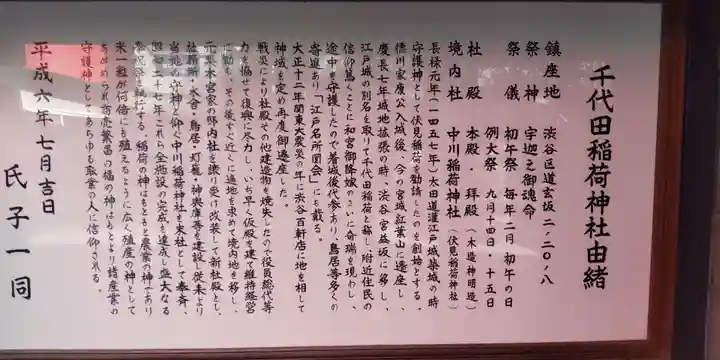 千代田稲荷神社由緒
鎮座地 渋谷区道玄坂二ノ二〇ノ八
祭神 宇迦之御魂命
祭儀 初午祭 毎年二月初午の日
例大祭 九月十四日・十五日
社殿 本殿・拝殿(木造神明造)
境内社 中川稲荷神社(伏見稲荷神社)
長禄元年(一四五七年)太田道灌江戸城築城の時
守護神として伏見稲荷を勧請したのを創始とする。
徳川家康公入城後、今の宮城紅葉山に遷座し、
慶長七年城地拡張の時、渋谷宮益坂に移し、
江戸城の別名を取りて千代田稲荷と称し附近住民の
信仰篤くことに和宮御降嫁のさいに奇瑞を現わし、
途中を守護したので着城後代参あり、鳥居等多くの
寄進あり「江戸名所図会」にも載る。
大正十二年関東大震災の年に渋谷百軒店に地を相して
神域を定め再度御遷座した。
戦災により社殿その他建造物を焼失したので役員総代等
力を協せて復興に尽力し、いち早く仮殿を建て維持経営
に勤む、その後すぐ近くに適地を求めて境内地を移し、
元梨本宮家の邸内社を譲り受け改装して新社殿とし、
社務所・水舎・鳥居・灯籠・神輿庫等を建設し従来より
当地の守神と仰ぐ中川稲荷神社を末社として奉斎、
昭和三十七年これら全施設の完成を達成し盛大なる
奉祝祭を執行する。稲荷の神はもともと農業の神であり
米一粒が何倍にも殖えるように広く殖産の神として
あがめられ商売繁昌の福の神はもとより諸産業の
守護神としてあらゆる職業の人に信仰される。
平成六年七月吉日
氏子一同